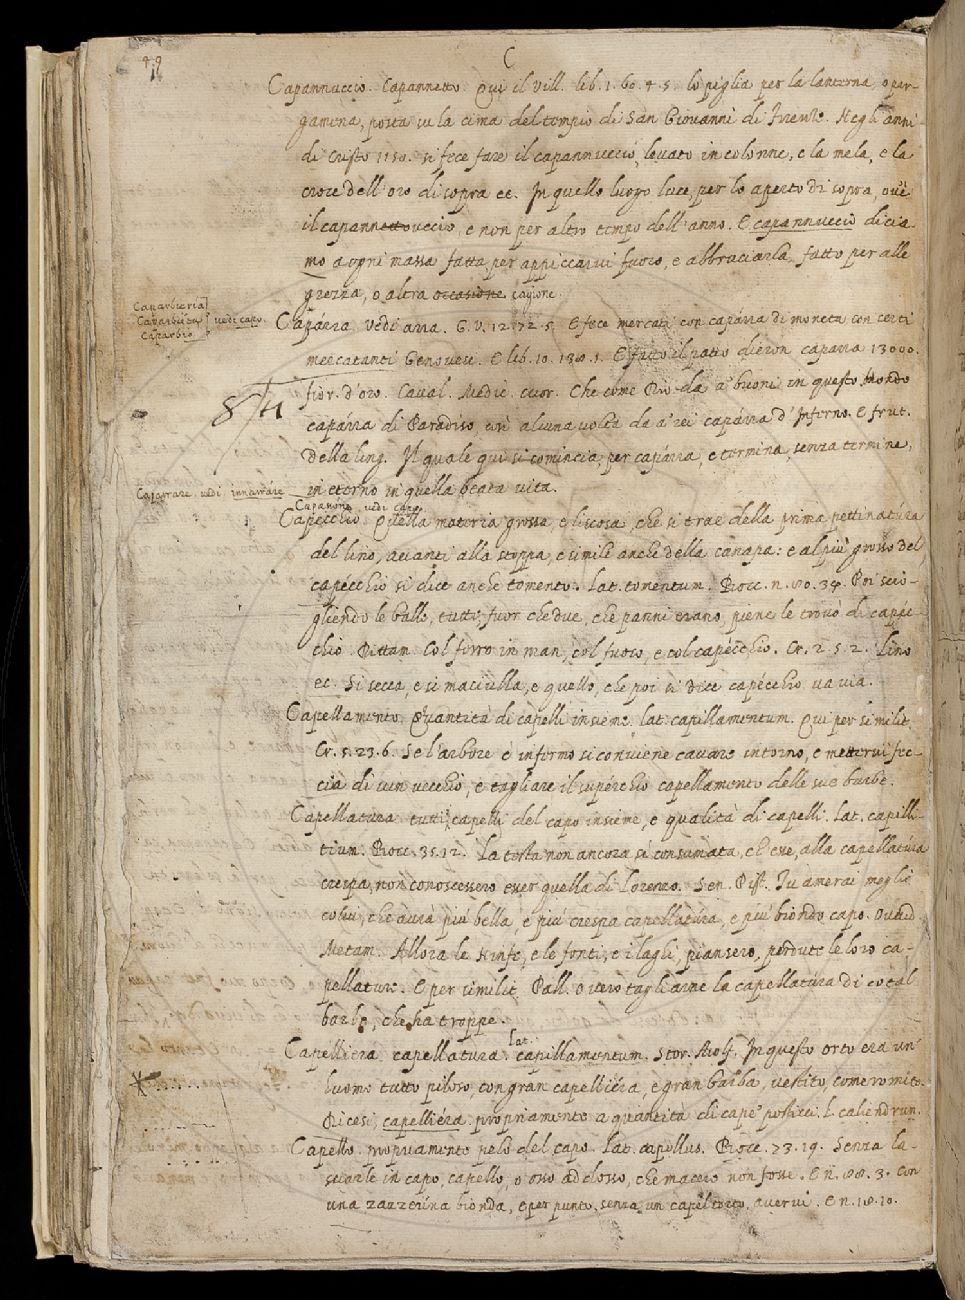 C
Capannuccio. Capannetto. Qui il Vill. lib. 1. 60. 4. 5. lo piglia per la lanterna, o per-
gamena, posta su la cima del tempio di San Giovanni di Firenze. Negli anni
di Cristo 1150. si fece fare il capannuccio, levato in colonne, e la mela, e la
croce dell'oro di sopra ec. In quello luogo luce, per lo aperto di sopra, ov'è
il capannettouccio, e non per altro tempo dell'anno. E capannuccio dicia-
mo a ogni massa fatta per appiccarvi fuoco, e abbruciarla, fatto per alle
grezza, o altra occasione cagione.
Caparbieria
Caparbio
vedi capo
Capárra vedi arra. G. V. 12. 72. 5. E fece mercati con capárra di moneta con certi
mercatanti Genovesi. E lib. 10. 130. 1. E fatto il patto dieron caparra 13000.
fior. d'oro. Caval. Medic. cuor. Che come Dio dà a' buoni in questo Mondo
capárra di Paradiso, così alcuna volta dà a' rei capárra d'Inferno. E frut.
della ling. Il quale qui si comincia, per capárra, e termina, senza termine,
Caparrare. vedi innarráre
in eterno in quella beata vita.
Caparrone vedi capo
Capécchio. Quella materia grossa, e liscosa, che si trae della prima pettinatúra
del lino, avanti alla stoppa, e simile anche della canapa: e al più grosso del
capecchio si dice anche tomento. Lat. tomentum. Bocc. n. 80. 34. Poi scio-
gliendo le balle, tutte, fuor che due, che panni erano, piene le trovò di capéc-
chio. Pittaff. Col ferro in man, col fuoco, e col capécchio. Cr. 2. 5. 2. Lino
ec. Si secca, e si maciulla, e quello, che poi si dice capécchio va via.
Capellamento. Quantità di capelli insieme. lat. capillamentum. Qui per similit.
Cr. 5. 23. 6. Se l'arbore è infermo si conviene cavare intorno, e mettervi fec-
cia di vin vecchio, e tagliare il supérchio capellamento delle sue barbe.
Capellatúra. tutti i capelli del capo insieme, e qualità di capelli. Lat. capilli-
tium. Bocc. 35. 12. La testa non ancora sì consumata, che essi, alla capellatúra
crespa, non conoscessero esser quella di Lorenzo. Sen. Pist. Tu amerai meglio
colui, che avrà più bella, e più crespa capellatúra, e più biondo capo. Ovvid.
Metam. Allora le Ninfe, e le fonti, e i laghi, piansero, perdute le loro ca-
pellature. E per similit. Pall. O vero tagliarne la capellatúra di cotal
barbe, che ha troppe.
Capelliéra. capellatura. Lat. capillamentum. Stor. Aiolf. In questo orto era un'
luomo tutto piloso, con gran capelliéra, e gran barba, vestito, come romito.
Dicesi, capelliéra. propriamente a quantità di cape' posticci. l. caliendrum.
Capello. Propriamente pelo del capo. Lat. capillus. Bocc. 73. 19. Senza la-
sciarle in capo, capello, o osso addosso, che macero non fosse. E n. 88. 3. Con
una zazzerina bionda, e per punto, senza un capel torto, avervi. E n. 18. 10.